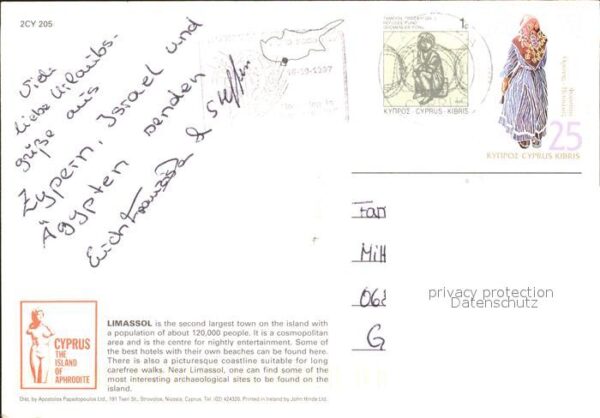 2CY 205
Viele
liebe Urlaubs-
grüße aus
Zypern, Israel und
Ägypten senden
Euch Franziska & Steffen
18-10-1997
1c
ΚΥΠΡΟΣ CYPRUS KIBRIS
25
ΚΥΠΡΟΣ CYPRUS KIBRIS
Fam
Mitt
068
G
privacy protection
Datenschutz
CYPRUS
THE
ISLAND
OF
APHRODITE
LIMASSOL is the second largest town on the island with
a population of about 120,000 people. It is a cosmopolitan
area and is the centre for nightly entertainment. Some of
the best hotels with their own beaches can be found here.
There is also a picturesque coastline suitable for long
carefree walks. Near Limassol, one can find some of the
most interesting archaeological sites to be found on the
island.
Dist. by Apostolos Papadopoulos Ltd., 191 Tseri St., Strovolos, Nicosia, Cyprus. Tel (02) 424320. Printed in Ireland by John Hinde Ltd.